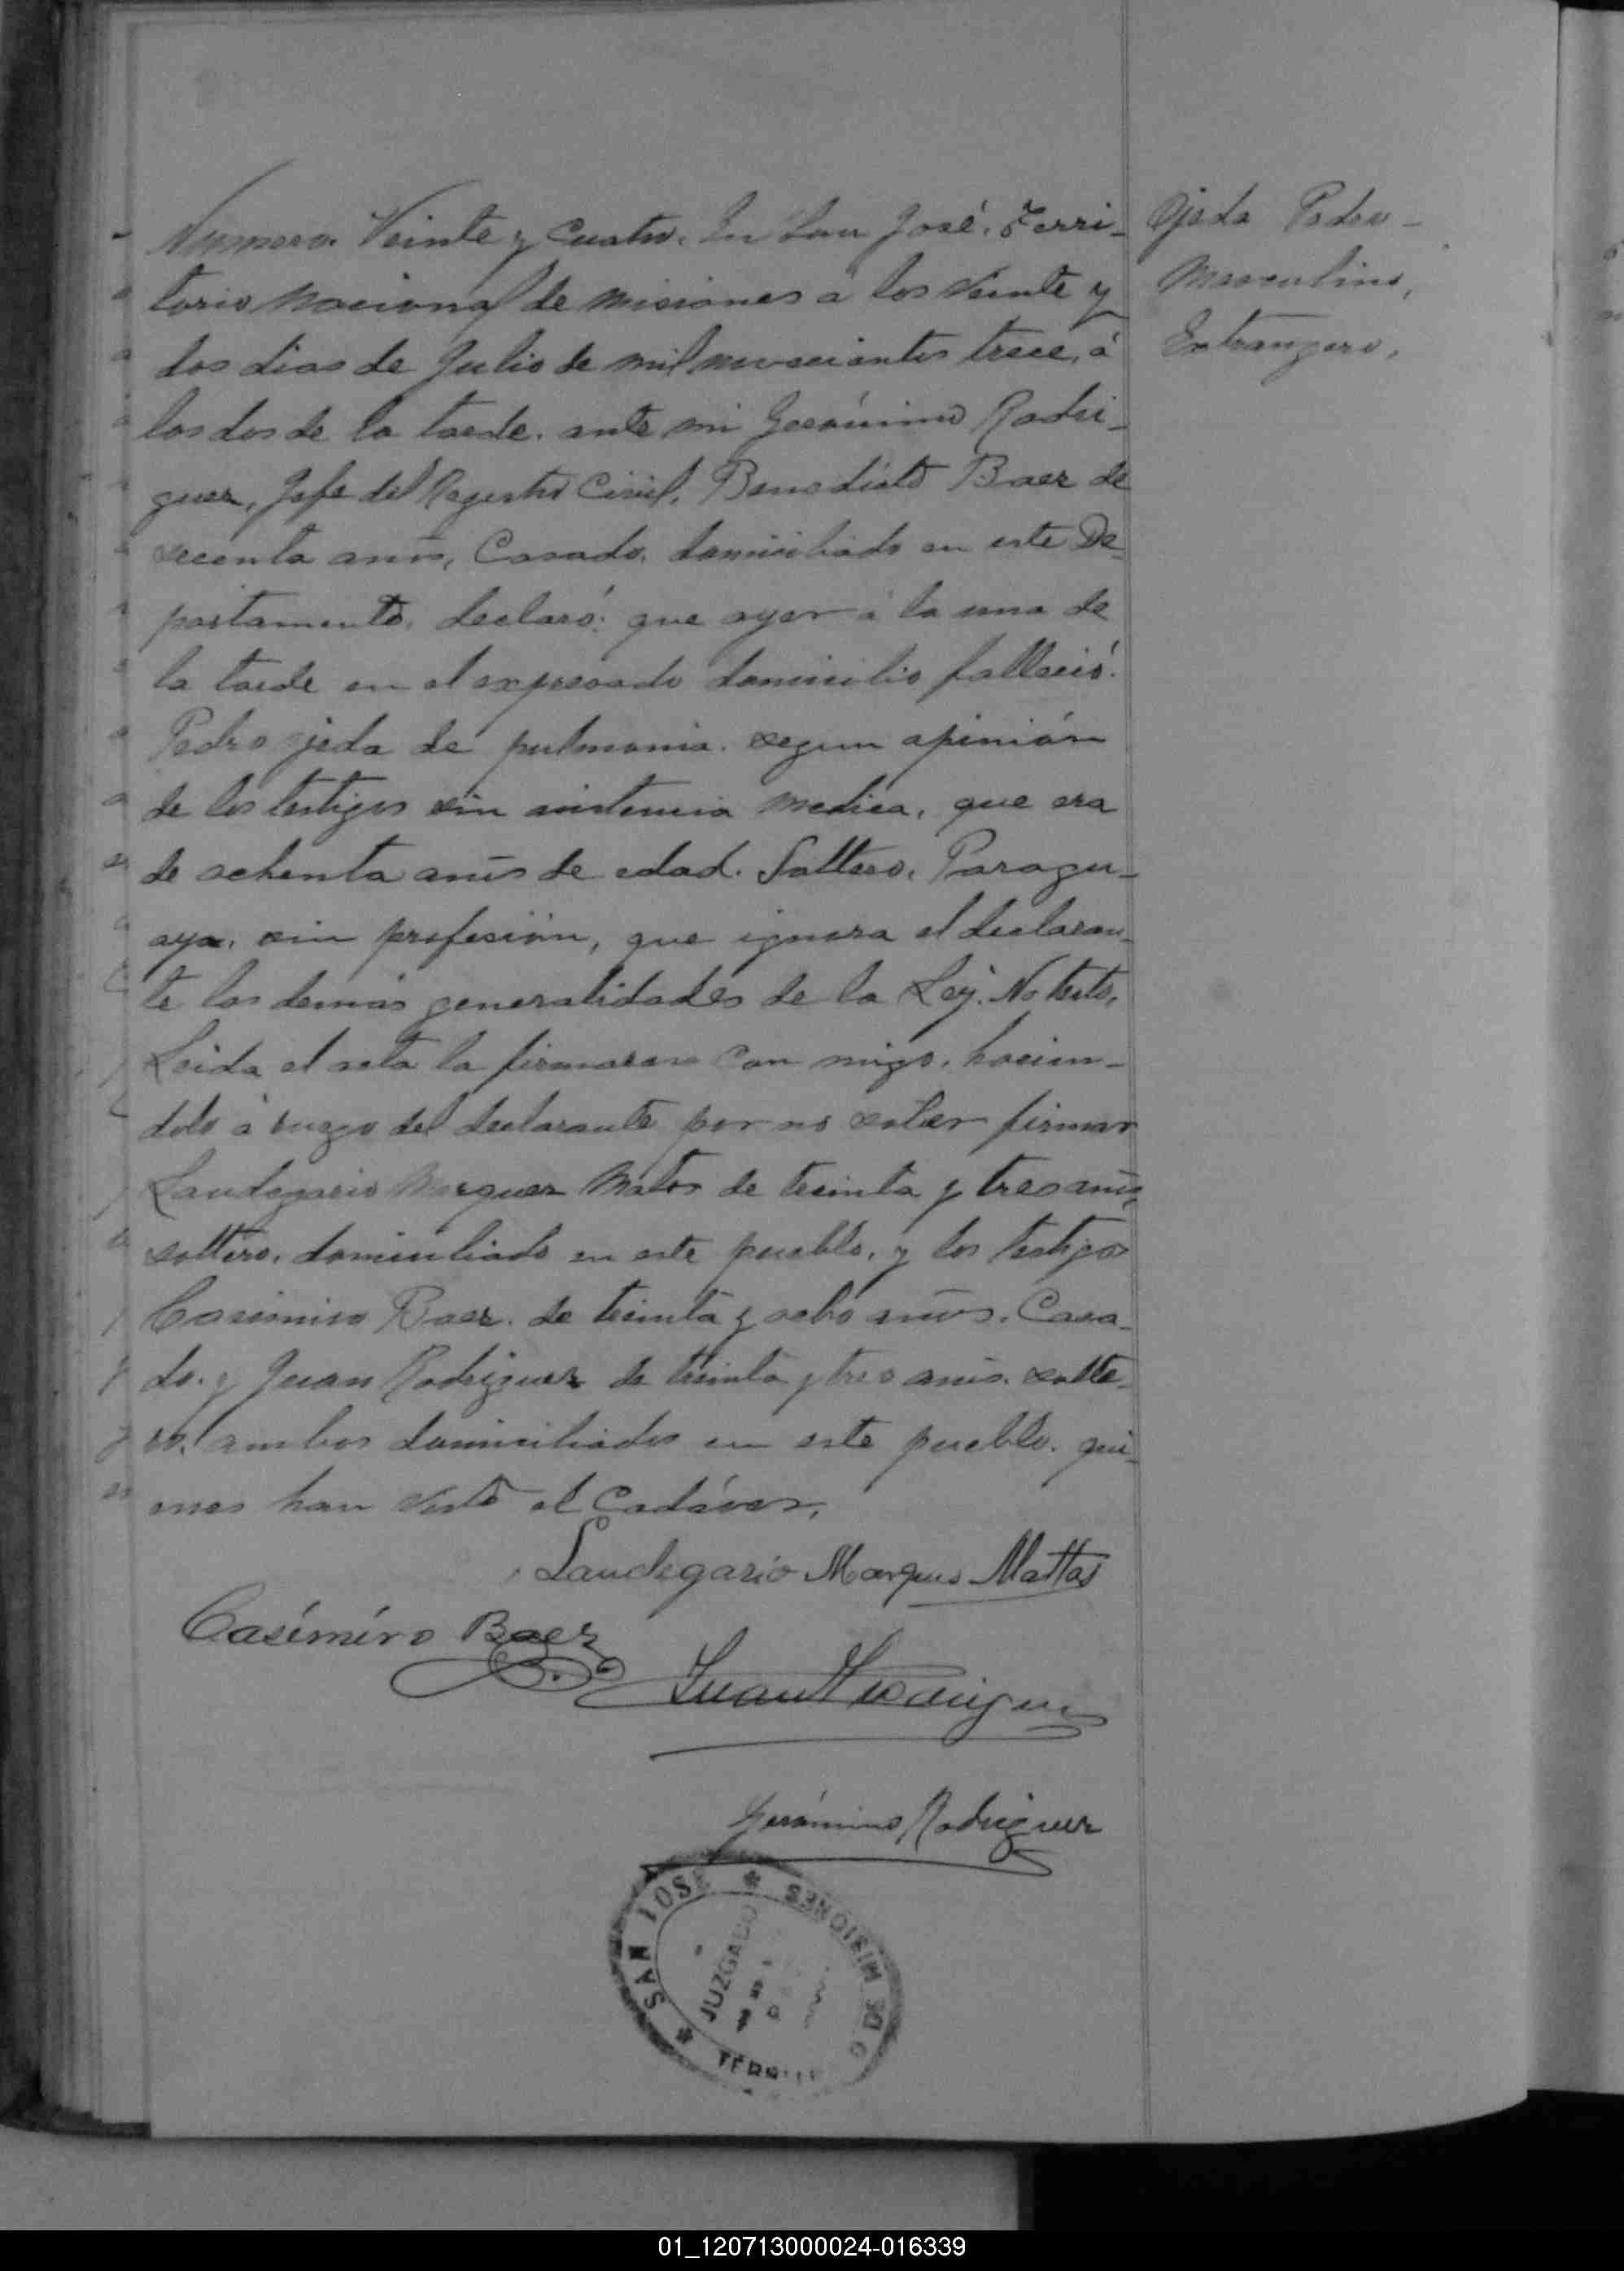 Numero. Veinte y Cuatro. En San José, Terri-
torio Nacional de Misiones a los veinte y
dos dias de Julio de mil novecientos trece, á
las dos de la tarde. ante mi Gerónimo Rodri-
guez, Jefe del Registro Civil, Benedicto Baez de
secenta años, Casado, domiciliado en este De-
partamento, declaró: que ayer á la una de
la tarde en el expresado domicilio falleció.
Pedro ojeda de pulmonia. segun opinión
de los testigos sin asistencia medica, que era
de ochenta años de edad. Soltero, Paragu-
ayo, sin profesión, que ignora el declaran-
te las demás generalidades de la Ley. No testó,
Leida el acta la firmaron con migo, hacien-
dolo á ruego del declarante por no saber firmar
Laudegario Marquez Matos de treinta y tres años,
soltero, domiciliado en este pueblo, y los testigos
Casimiro Baez. de treinta y ocho años. Casa-
do. y Juan Rodriguez de treinta y tres años. solte-
ro, ambos domiciliados en este pueblo. qui-
enes han visto el Cadáver,
Laudegario Marques Mattos
Casímíro Baez
Juan Rodriguez
Gerónimo Rodriguez
SAN JOSÉ * MISIONES
JUZGADO
Ojeda Pedro -
Masculino,
Extrangero,
01_120713000024-016339